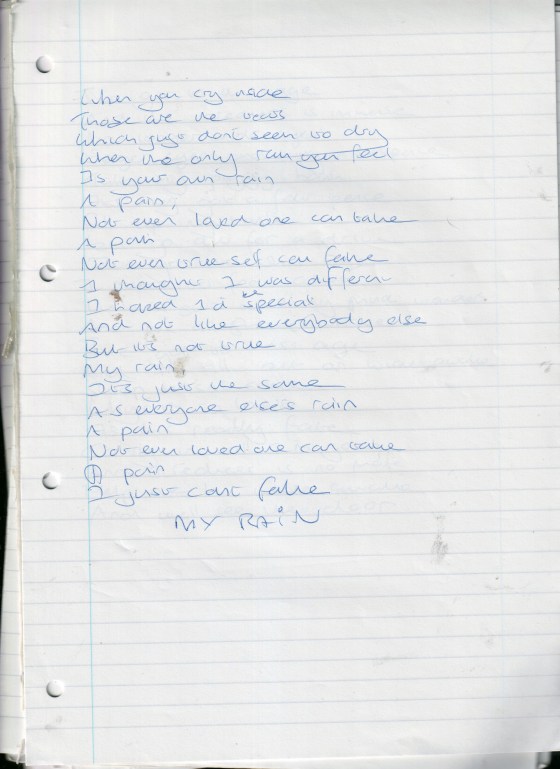 When you cry inside
Those are the tears
Which just dont seem to dry
When the only rain you feel
Is your own rain
A pain,
Not even loved one can take
A pain
Not even true self can fake
I thought I was different
I hoped I'd be special
And not like everybody else
But it's not true
My rain
It's just the same
As everyone else's rain
A pain
Not even loved one can take
A pain
I just cant fake
MY RAIN